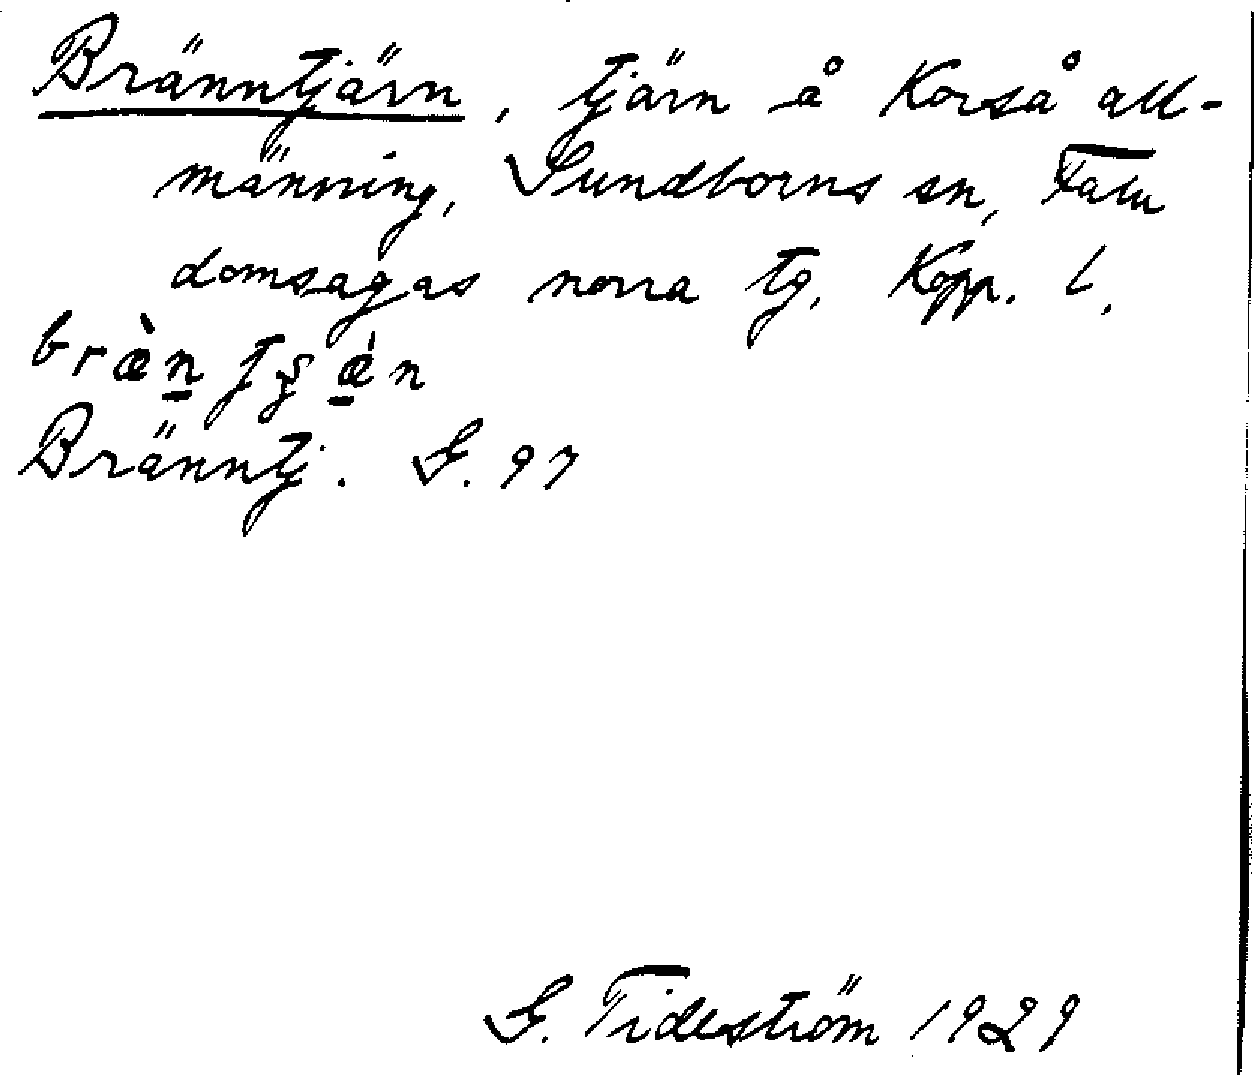 Bränntjärn, tjärn å Korså all-
männing, Sundborns sn, Falu
domsagas norra tg. Kopp. l.
Bränntj. G. 97
G. Tideström 1929